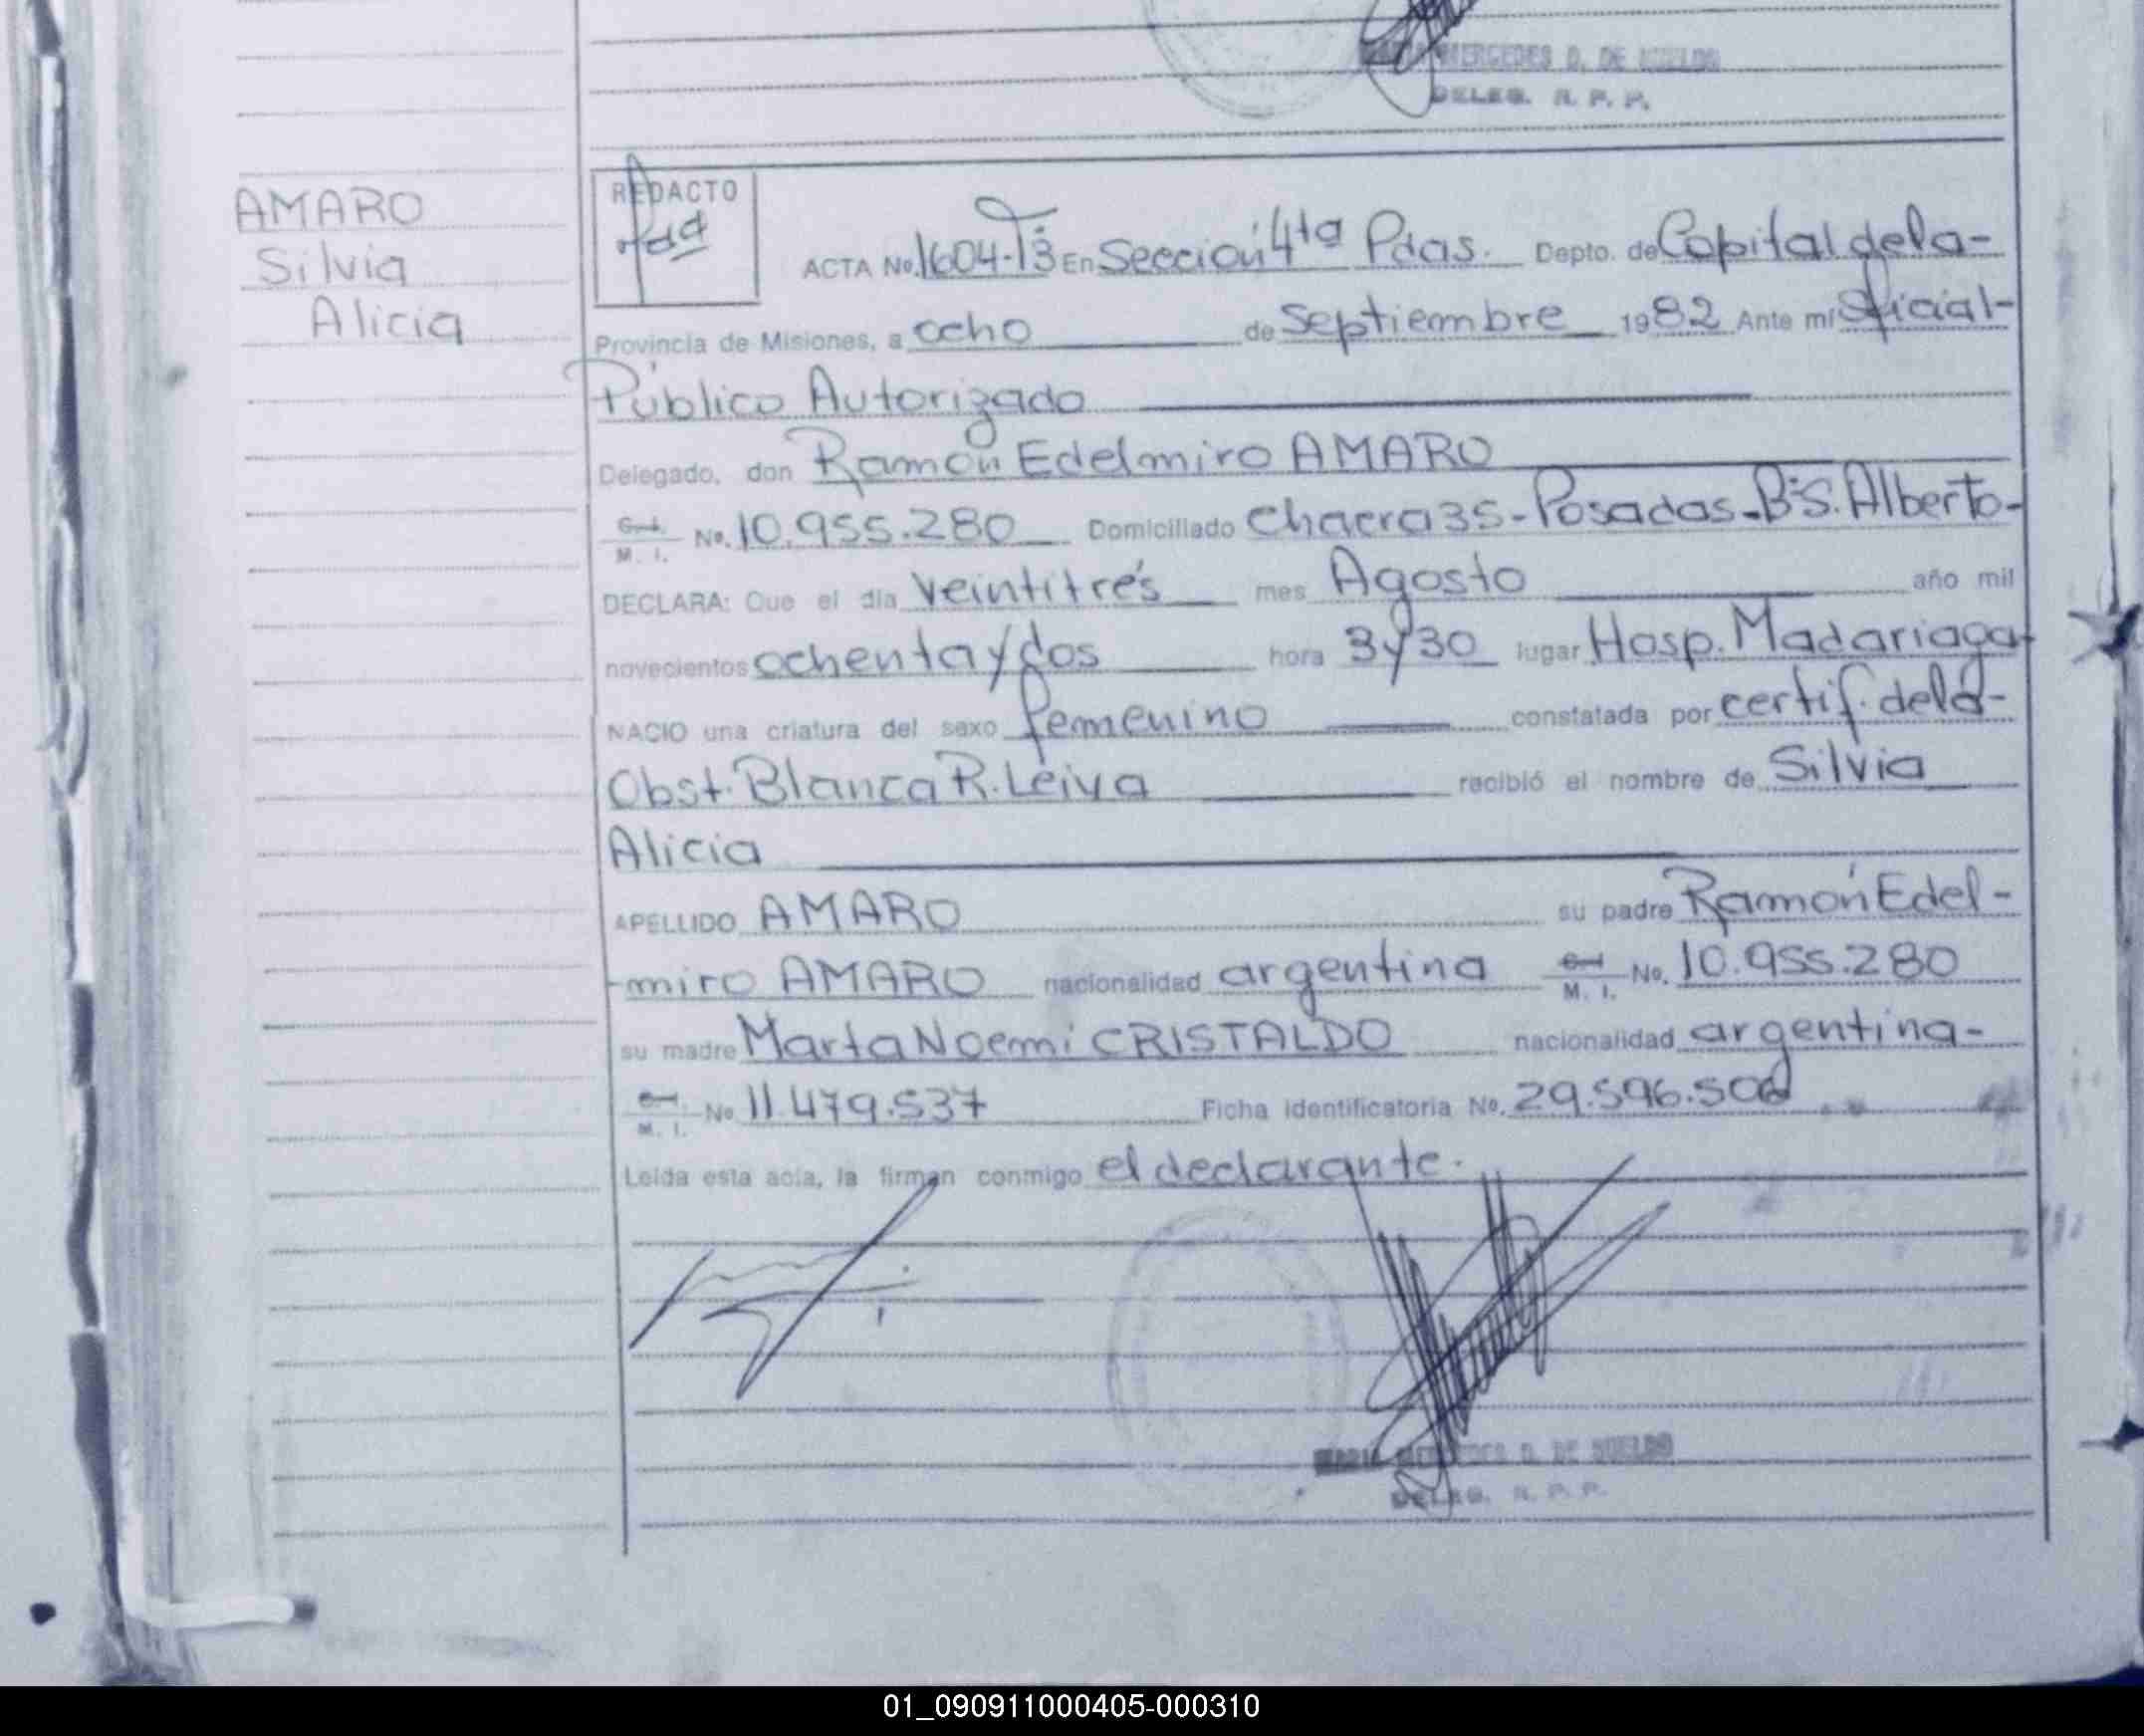 MERCEDES D. DE SUELDO
DELEG. R. P. P.
AMARO
Silvia
Alicia
REDACTO
ACTA No. 1604-T3 En Sección 4ta Pdas. Depto. de Capital de la-
Provincia de Misiones, a ocho de septiembre 1982 Ante mi Oficial-
Público Autorizado
Delegado, don Ramón Edelmiro AMARO
M. I. No. 10.955.280 Domiciliado Chacra 35-Posadas-Bº S. Alberto-
DECLARA: Que el día veintitrés mes Agosto año mil
novecientos ochenta y dos hora 3 y 30 lugar Hosp. Madariaga-
NACIO una criatura del sexo femenino constatada por certif. de la-
Obst. Blanca R. Leiva recibió el nombre de Silvia
Alicia
APELLIDO AMARO su padre Ramón Edel-
-miro AMARO nacionalidad argentina M. I. No. 10.955.280
su madre Marta Noemi CRISTALDO nacionalidad argentina-
M. I. No 11.479.537 Ficha identificatoria No. 29.596.506
Leida esta acta, la firman conmigo el declarante.
MARIA MERCEDES D. DE SUELDO
DELEG. R. P. P.
01_090911000405-000310